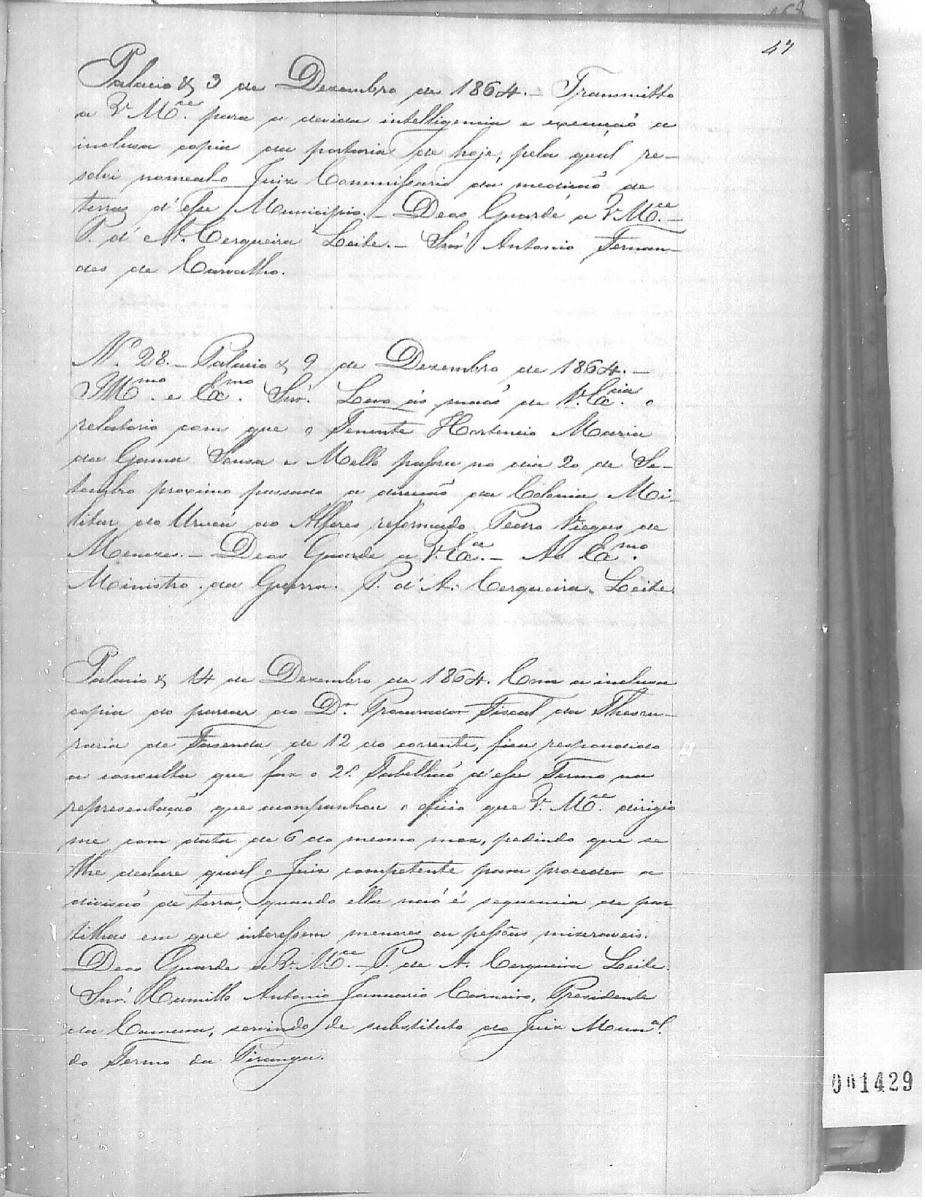 47
Palacio & 3 de Dezembro de 1864. – Transmitto
a V Mce. para a devida intelligencia e execução a
inclusa copia da portaria de hoje, pela qual re-
solvi nomeal-o Juiz Commissario da medição de
terras d'esse Municipio. – Deos Guarde a V Mce. –
P. d'A. Cerqueira Leite. – Snr. Antonio Fernan-
des de Carvalho.
Nº 28. – Palacio & 9 de Dezembro de 1864. –
Illmo. e Exmo. Snr. Levo ás mãos de V. Excia. o
relatorio com que o Tenente Hortencio Maria
da Gama Souza e Mello passou no dia 20 de Se-
tembro proximo passado a direcção da Colonia Mi-
litar do Urucú ao Alferes reformado Pedro Viegas de
Menezes. – Deos Guarde a V. Exa. – Ao Exmo.
Ministro da Guerra. P. d'A. Cerqueira Leite.
Palacio & 14 de Dezembro de 1864. Com a inclusa
copia do parecer do Dr. Procurador Fiscal da Thesou-
raria de Fasenda de 12 do corrente, fica respondido
a consulta que faz o 2º. Tabellião d'esse Termo na
representação, que acompanhou o oficio que V. Mce. dirigio
me com data de 6 do mesmo mez, pedindo que se
lhe declare qual o Juiz competente para proceder a
divisão de terra, quando ella não é sequencia de par
tilhas em que interessem menores ou pessoas miseraveis.
Deos Guarde a V. Mce. – P. de A. Cerqueira Leite.
Snr. Camillo Antonio Januario Carneiro, Presidente
da Camara, servindo de substituto do Juiz Munal.
do Termo da Piranga.
001429